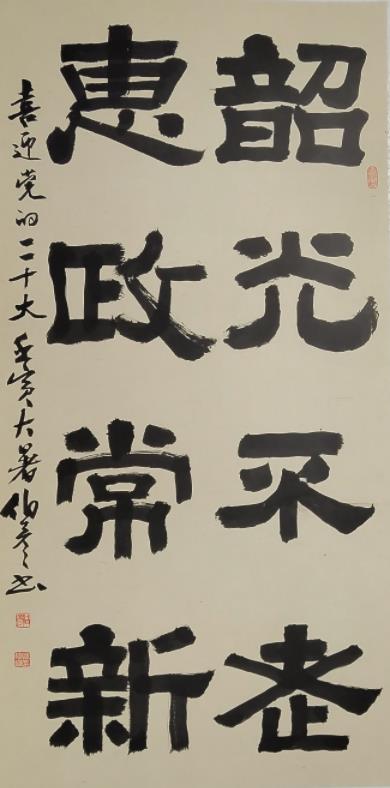 韶光不老
惠政常新
喜迎党的二十大 壬寅大暑 伯彦书